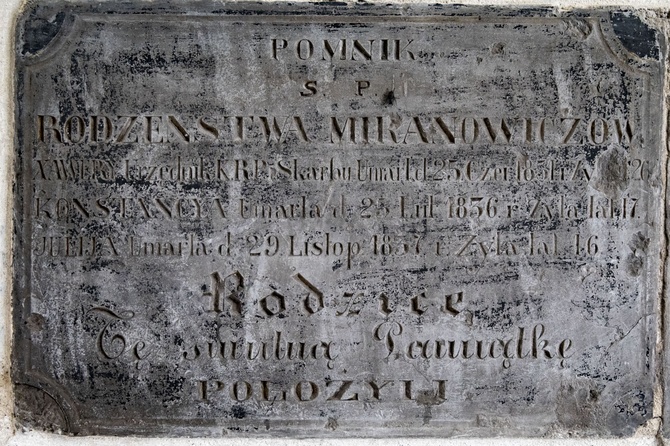 POMNIK
S. P.
RODZENSTWA MIRANOWICZOW
XAWERY Urzednik K.R.P. i Skarbu Umarł d. 25 Czer. 1831 r. Zył lat 26
KONSTANCYA Umarła d. 25 Lut. 1836 r. Zyła lat 17.
JULIJA Umarła d. 29 Listop. 1837 r. Zyła lat 16.
Rodzice
Tę smutną Pamiątkę
POŁOZYLI